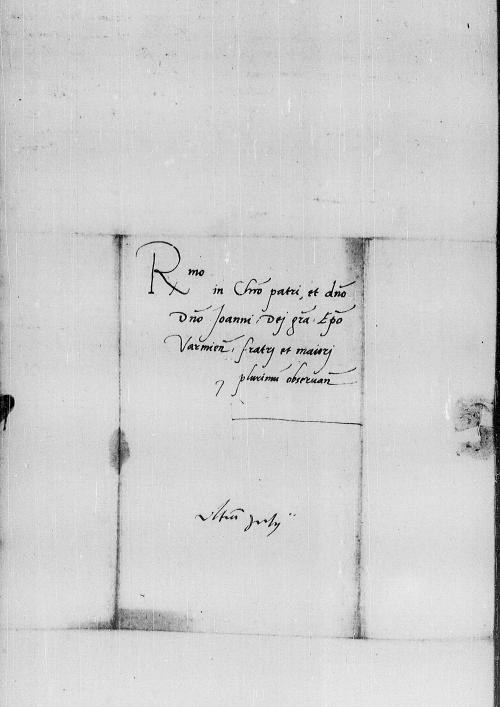 Rmo
in Chro patri, et dño
Dño Joanni Dei gra Epo
Varmieñ fratri et maiori
plurimu observañ